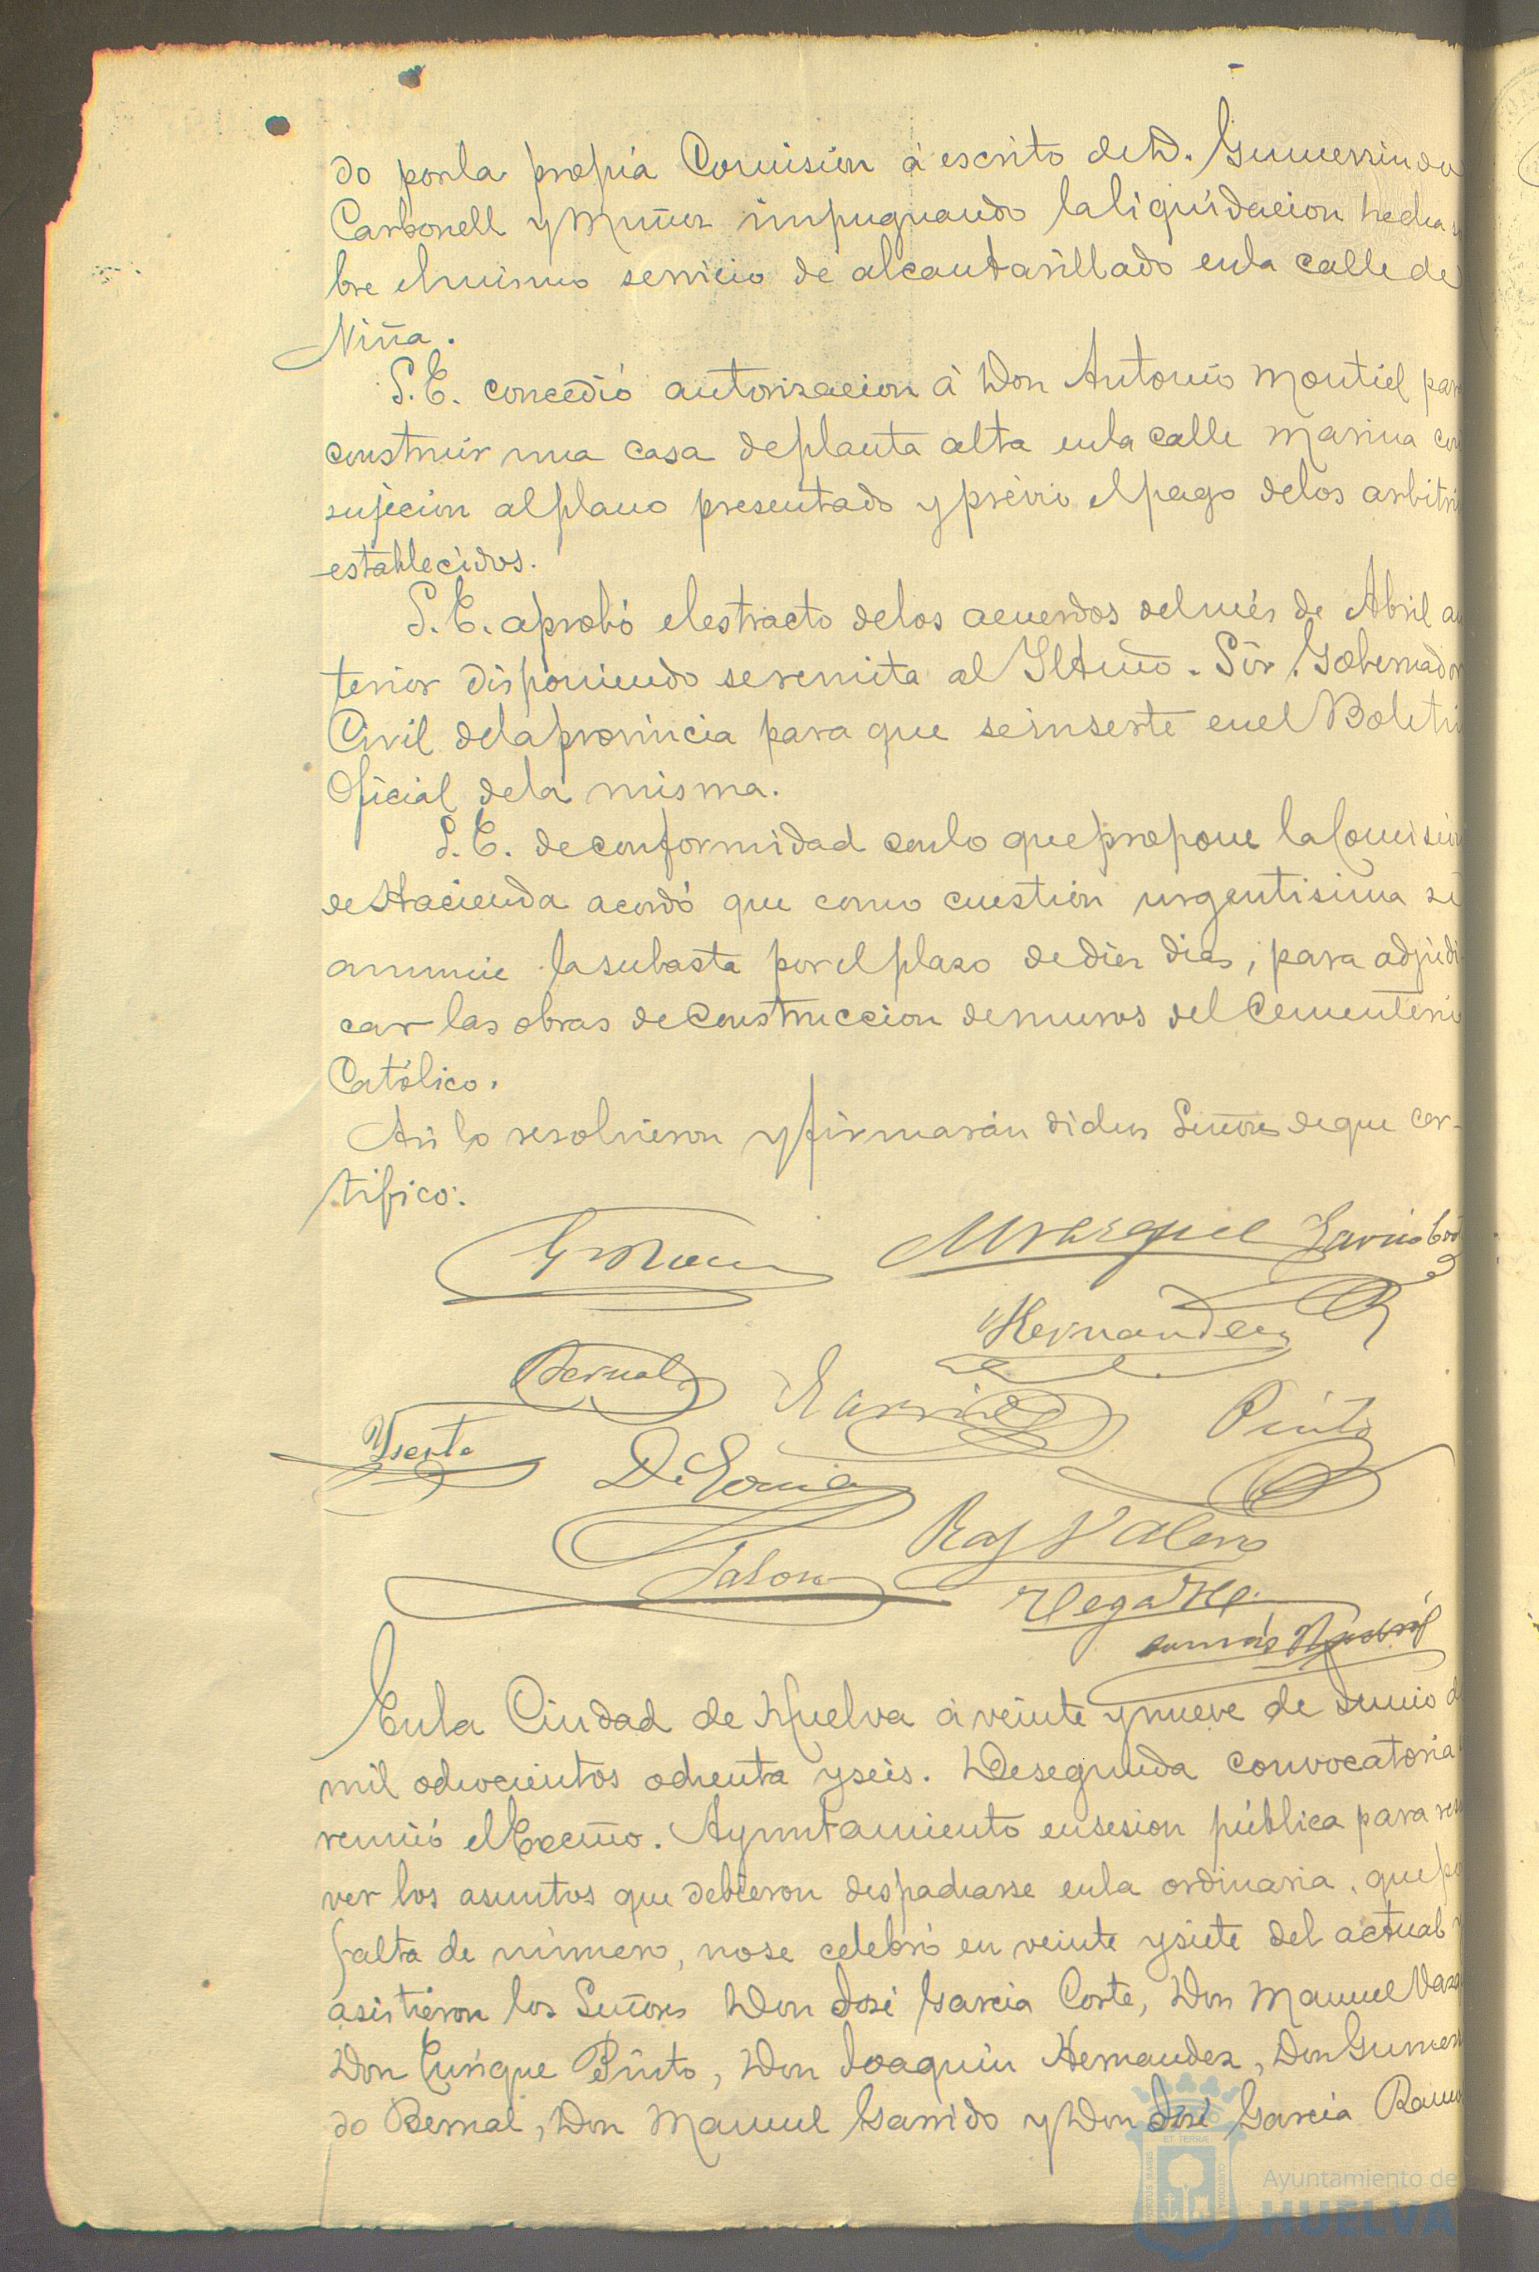 do por la propia Comisión á escrito de D. Gumersindo
Carbonell y Muñoz impugnando la liquidacion hecha
bre el mismo servicio de alcantarillado en la calle de
Niña.
S. E. concedió autorizacion á Don Antonio Montiel par
construir una casa de planta alta en la calle Marina con
sujecion al plano presentado y prévio el pago de los arbitri
establecidos.
S. E. aprobó el estracto de los acuerdos del mes de Abril an
terior disponiendo se remita al Iltmo. Sór. Gobernador
Civil de la provincia para que se inserte en el Boletin
Oficial de la misma.
S. E. de conformidad con lo que propone la Comision
de Hacienda acordó que como cuestion urgentisima se
anuncie la subasta por el plazo de diez dias, para adjudi
car las obras de construccion de muros del Cementerio
Católico.
Asi lo resolvieron y firmarán dichos Señores de que cer-
tifico.
Hernandez
Bernal
Garrido
Pinto
Vega
En la Ciudad de Huelva á veinte y nueve de Junio d
mil ochocientos ochenta y seis. De segunda convocatoria
reunió el Excmo. Ayuntamiento en sesion pública para
ver los asuntos que debieron despacharse en la ordinaria, que po
falta de número, no se celebró en veinte y siete del actual
asistieron los Señores Don José Garcia Corte, Don Manuel Vazq
Don Enrique Pinto, Don Joaquin Hernandez, Don Gumersin
do Bernal, Don Manuel Garrido y Don José Garcia Ramo
Ayuntamiento de
HUELVA